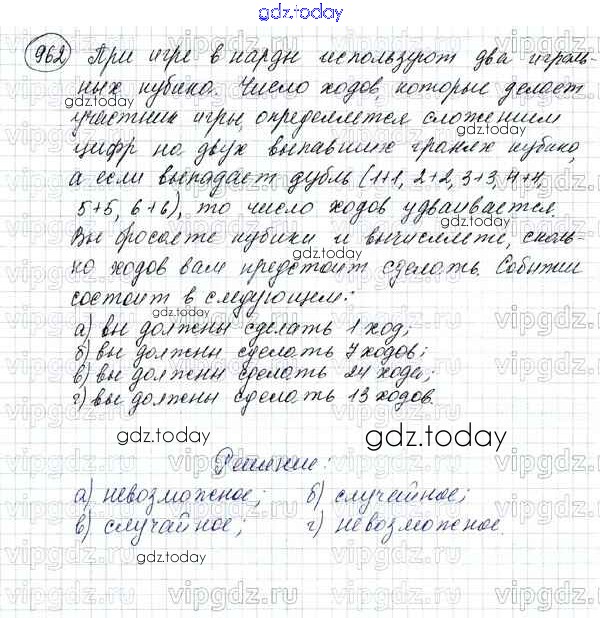 gdz.today
962 При игре в нарды используют два играль-
ных кубика. Число ходов, которые делает
gdz.today
участник игры, определяется сложением
цифр на двух выпавших гранях кубика,
а если выпадает дубль (1+1, 2+2, 3+3, 4+4,
5+5, 6+6), то число ходов удваивается.
Вы бросаете кубики и вычисляете, сколь-
ко ходов вам предстоит сделать. Событие
состоит в следующем:
а) вы должны сделать 1 ход;
б) вы должны сделать 7 ходов;
в) вы должны сделать 24 хода;
г) вы должны сделать 13 ходов.
gdz.today gdz.today
Решение:
а) невозможное; б) случайное;
в) случайное; г) невозможное.
gdz.today
vipgdz.ru